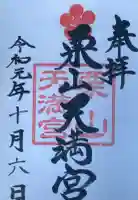 奉拝
栗山天満宮
令和元年十月六日
栗山
天満宮